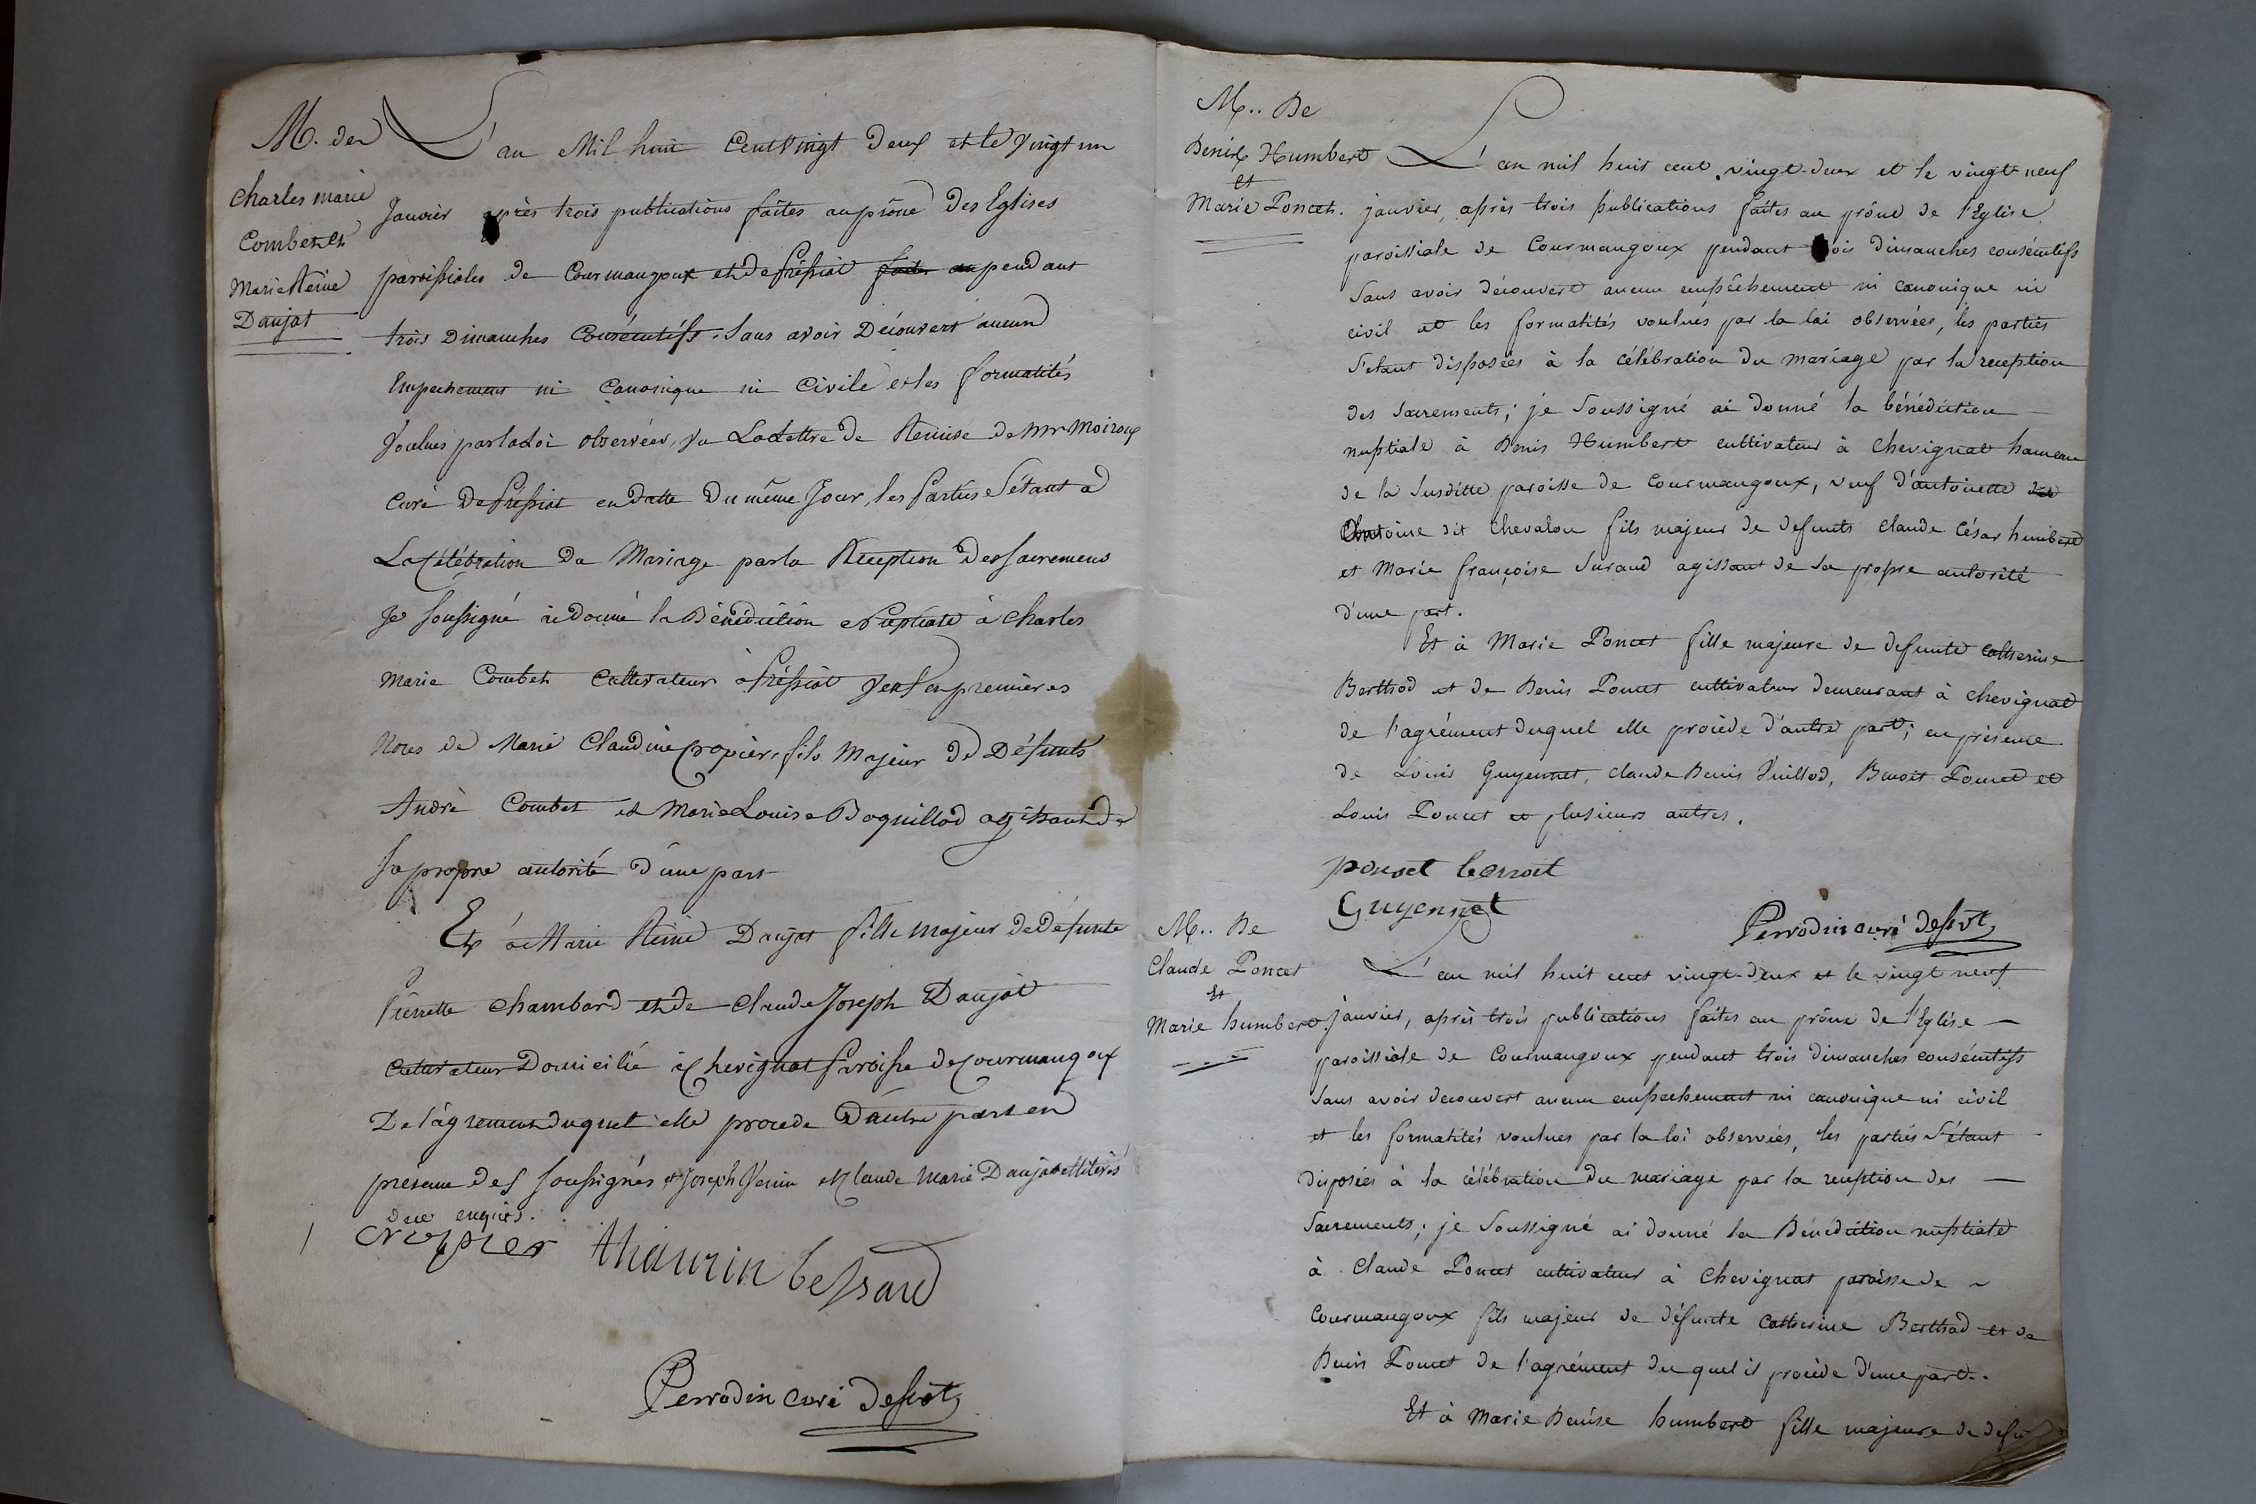 M. de
Charles marie
Combet et
Marie Reine
Daujat
L'an Mil huit Cent Vingt Deux et le Vingt un
Janvier après trois publications faites au prône Des Eglises
paroissiales de Courmangoux et de Préssiat pendant
trois Dimanches Consécutifs. Sans avoir Découvert aucun
Empechement ni Canonique ni Civile et les formalités
Voulues par la Loi observées, Vu La Lettre de Remise de Mr Moiroux
Curé De Préssiat en Datte Du même Jour, les Parties S'étant
La Célébration Du Mariage par la Réception Des Sacremens
Je soussigné ai Donné la Bénédiction Nuptiale à Charles
Marie Combet Cultivateur à Préssiat Veuf en premieres
Noces de Marie Claudine Cropier, fils Majeur de Défunts
André Combet et Marie Louise Boquillod agissant De
sa propre autorité D'une part
Et à Marie Reine Daujat fille Majeur de Défunte
Pierrette Chambard et de Claude Joseph Daujat
Cultivateur Domicilié à Chevignat Paroisse de Courmangoux
De l'àgrement duquel elle procede D'autre part en
présence des soussignés et Joseph et Claude Marie Daujat illiterés
De ce enquis.
Cropier thaurin bessard
Perrodin curé dessert
M.. De
Denis Humbert
et
Marie Poncet.
L'an mil huit cent vingt-deux et le vingt neuf
janvier, après trois publications faites au prône de l'Eglise
paroissiale de Courmangoux pendant trois dimanches consécutifs
Sans avoir découvert aucun empêchement ni canonique ni
civil et les formalités voulues par la loi observées, les parties
S'etant disposées à la célébration du mariage par la reception
des Sacrements; je Soussigné ai donné la bénédiction
nuptiale à Denis Humbert cultivateur à Chevignat hameau
de la Susditte paroisse de Courmangoux, veuf d'antoinette
Antoine dit Chevalon fils majeur de defunts Claude César humbert
et Marie françoise Suraud agissant de sa propre autorité
d'une part.
Et à Marie Poncet fille majeure de defunte Catherine
Berthod et de Denis Poncet cultivateur demeurant à Chevignat
de l'agrément duquel elle procède d'autre part; en présence
de Louis Guyennet, Claude Denis Vuillod, Benoit Poncet et
Louis Poncet et plusieurs autres.
ponset benoit
Guyennet
Perrodin curé dessert
M.. De
Claude Poncet
Et
Marie humbert.
L'an mil huit cent vingt-deux et le vingt neuf
janvier, après trois publications faites au prône de l'Eglise
paroissiale de Courmangoux pendant trois dimanches consécutifs
Sans avoir découvert aucun empechement ni canonique ni civil
et les formalités voulues par la loi observées, les parties S'étant
disposées à la célébration du mariage par la reception des
Sacrements; je Soussigné ai donné la Bénédiction nuptiale
à Claude Poncet cultivateur à Chevignat paroisse de
Courmangoux fils majeur de défunte Catherine Berthod et de
Denis Poncet de l'agrément du quel il procède d'une part.
Et à Marie Denise humbert fille majeure de